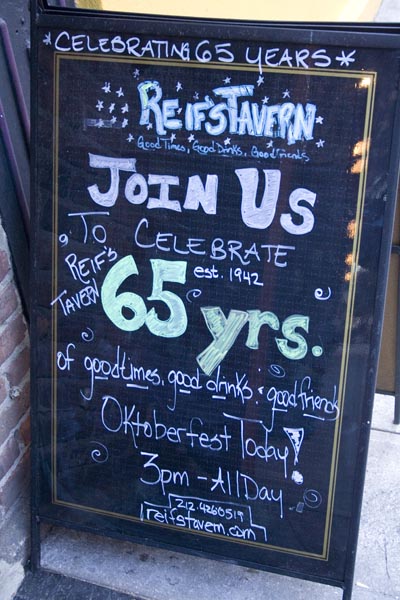 *CELEBRATING 65 YEARS*
REIF'S TAVERN
Good Times, Good Drinks, Good Friends
JOIN US
TO CELEBRATE
REIF'S
TAVERN
est. 1942
65 yrs.
of goodtimes, good drinks & good friends
Oktoberfest Today!
3pm - All Day
212.4260519
reifstavern.com